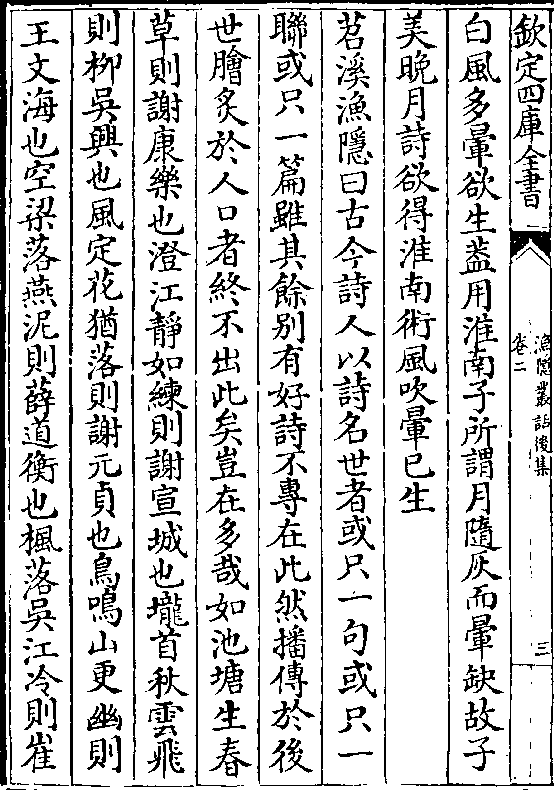 欽定四庫全書
漁隱叢話後集
卷二
三
白風多暈欲生葢用淮南子所謂月隨灰而暈缺故子
美晚月詩欲得淮南術風吹暈已生
苕溪漁隱曰古今詩人以詩名世者或只一句或只一
聯或只一篇雖其餘别有好詩不專在此然播傳於後
世膾炙於人口者終不出此矣豈在多哉如池塘生春
草則謝康樂也澄江靜如練則謝宣城也壠首秋雲飛
則柳吳興也風定花猶落則謝元貞也鳥鳴山更幽則
王文海也空梁落燕泥則薛道衡也楓落吳江冷則崔